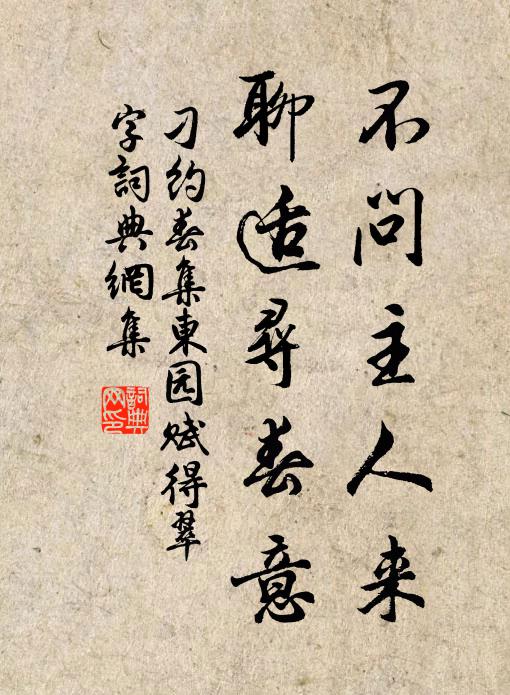 不问主人来
聊适尋春意
刁约春集東园赋得翠
字詞典網集
詞典
网印